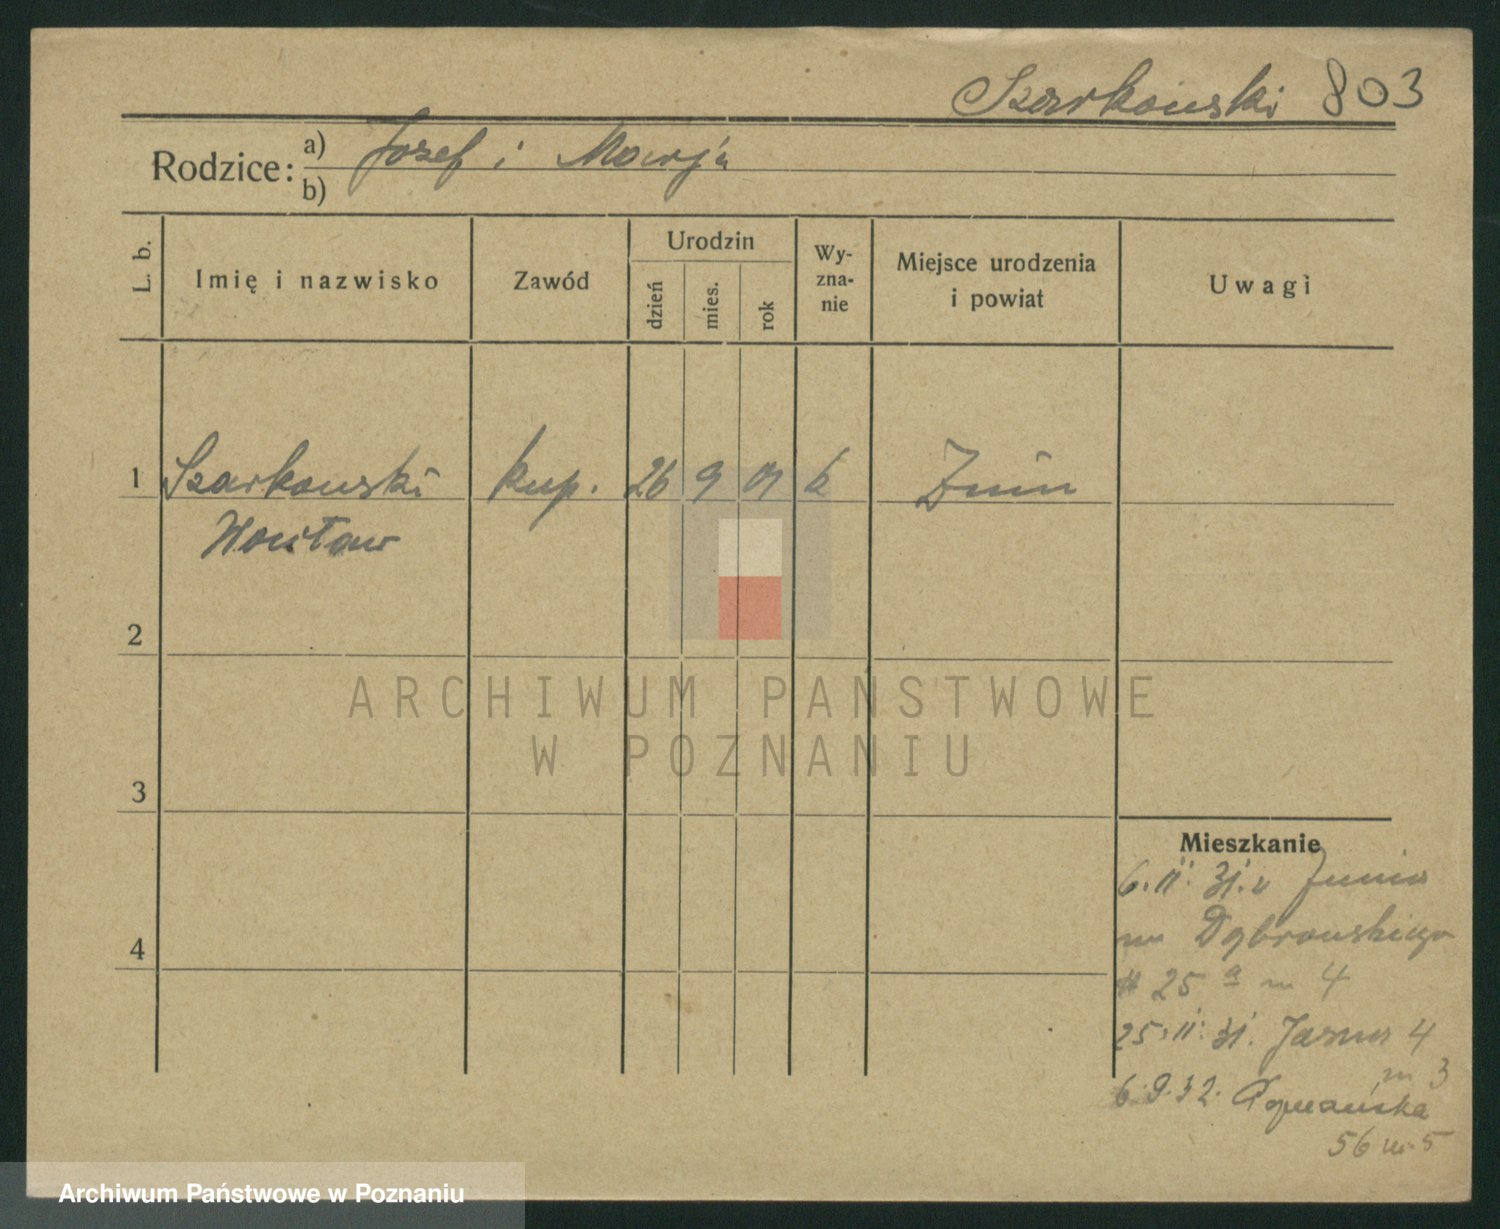 Szarkowski 803
Rodzice: a) Józef i Marja
b)
L. b. Imię i nazwisko Zawód Urodzin dzień mies. rok Wy-zna-nie Miejsce urodzenia i powiat Uwagi
1 Szarkowski kup. 26 9 01 k Żnin
Wacław
2
ARCHIWUM PAŃSTWOWE
W POZNANIU
3
Mieszkanie
6.II.31. z Żnina
na Dąbrowskiego
# 25 a m 4
4
25.II.31. Jasna 4
m 3
6.9.32. Poznańska
56 m 5
Archiwum Państwowe w Poznaniu